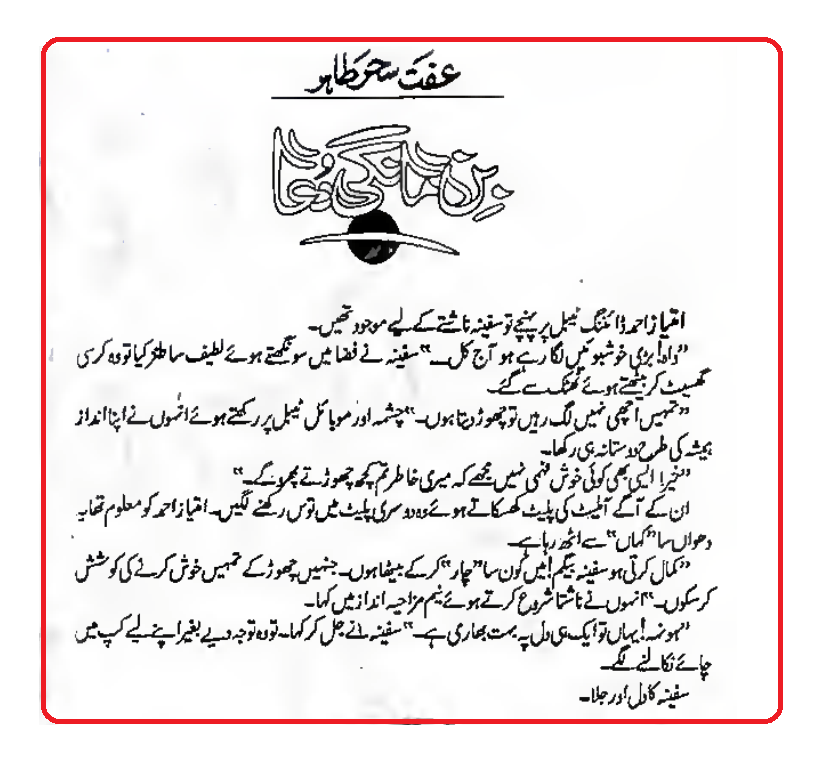 عفت سحر طاہر
بن مانگی دعا
امتیاز احمد ڈائننگ ٹیبل پر پہنچے تو سفینہ ناشتے کے لیے موجود تھیں۔
”واہ! بڑی خوشبوئیں لگا رہے ہو آج کل۔“ سفینہ نے فضا میں سونگھتے ہوئے لطیف سا طنز کیا تو وہ کرسی
گھسیٹ کر بیٹھتے ہوئے ٹھٹک سے گئے۔
”تمہیں اچھی نہیں لگ رہیں تو چھوڑ دیتا ہوں۔“ چشمہ اور موبائل ٹیبل پر رکھتے ہوئے انہوں نے اپنا انداز
ہمیشہ کی طرح دوستانہ ہی رکھا۔
”خیر! ایسی بھی کوئی خوش فہمی نہیں مجھے کہ میری خاطر تم کچھ چھوڑتے پھرو گے۔“
ان کے آگے آملیٹ کی پلیٹ کھسکاتے ہوئے وہ دوسری پلیٹ میں توس رکھنے لگیں۔ امتیاز احمد کو معلوم تھا یہ
دھواں سا ”کہاں“ سے اٹھ رہا ہے۔
”کمال کرتی ہو سفینہ بیگم! میں کون سا ”چار“ کر کے بیٹھا ہوں۔ جنہیں چھوڑ کے تمہیں خوش کرنے کی کوشش
کر سکوں۔“ انہوں نے ناشتا شروع کرتے ہوئے نیم مزاحیہ انداز میں کہا۔
”ہونہہ! یہاں تو ایک ہی دل پہ بہت بھاری ہے۔“ سفینہ نے جل کر کہا۔ تو وہ توجہ دیے بغیر اپنے لیے کپ میں
چائے نکالنے لگے۔
سفینہ کا دل اور جلا۔